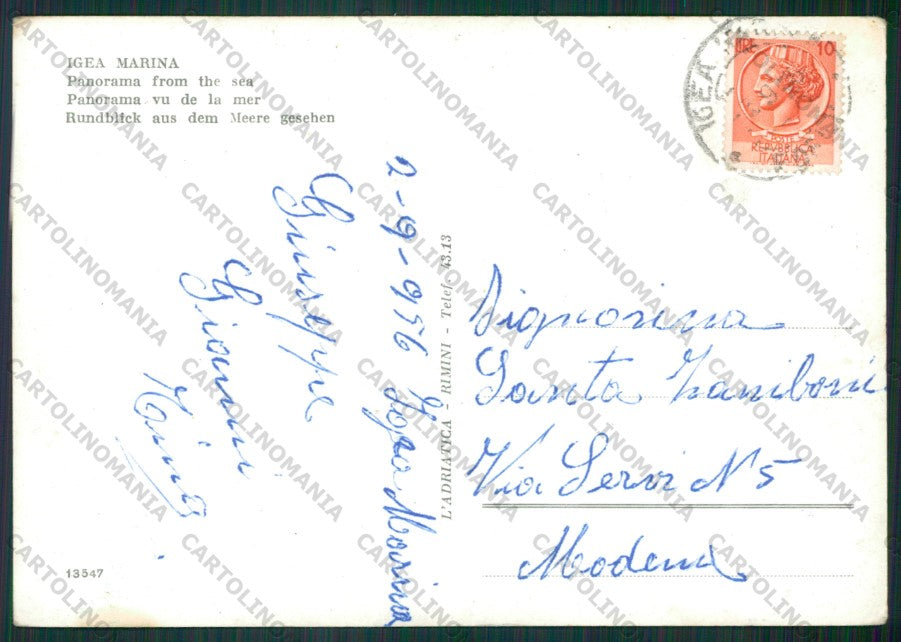 IGEA MARINA
Panorama from the sea
Panorama vu de la mer
Rundblick aus dem Meere gesehen
2-9-956 Igea Marina
Giuseppe
Gianni
L'ADRIATICA - RIMINI - Telef. 43.13
IGEA
LIRE 10
POSTE
REPVBBLICA
ITALIANA
Signorina
Santa Zaniboni
Via Servi N 5
Modena
13547
CARTOLINOMANIA